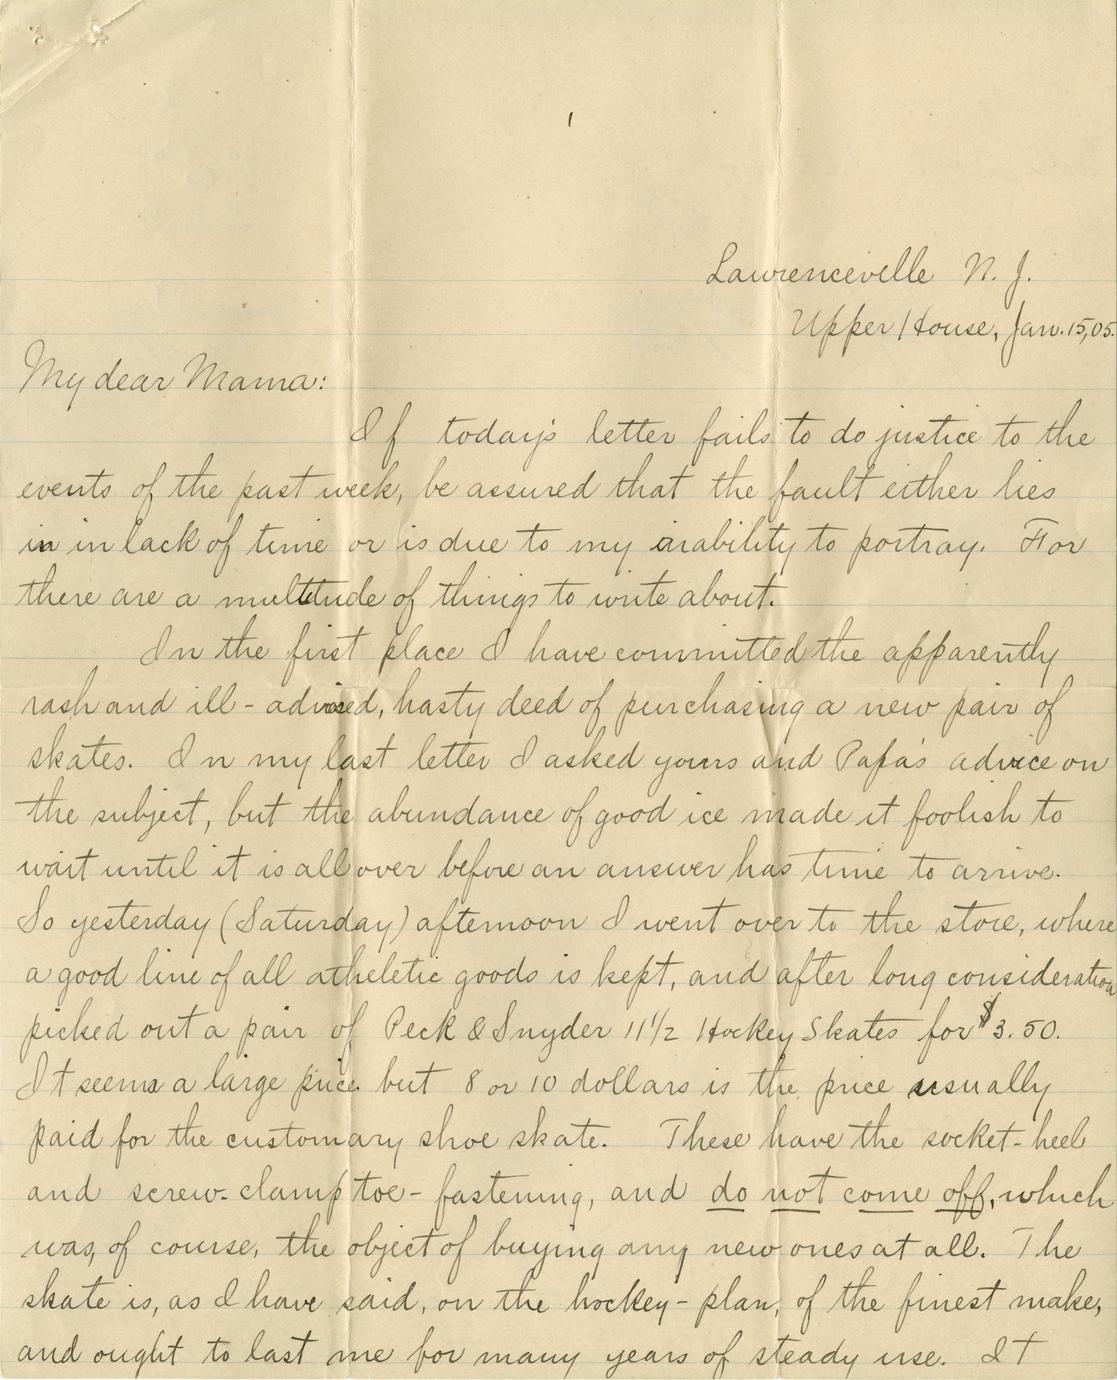 1
Lawrenceville N. J.
Upper House, Jan. 15, 05.
My dear Mama:
If today's letter fails to do justice to the
events of the past week, be assured that the fault either lies
in in lack of time or is due to my inability to portray. For
there are a multitude of things to write about.
In the first place I have committed the apparently
rash and ill-advised, hasty deed of purchasing a new pair of
skates. In my last letter I asked yours and Papa's advice on
the subject, but the abundance of good ice made it foolish to
wait until it is all over before an answer has time to arrive.
So yesterday (Saturday) afternoon I went over to the store, where
a good line of all atheletic goods is kept, and after long consideration
picked out a pair of Peck & Snyder 11 1/2 Hockey Skates for $3.50.
It seems a large price but 8 or 10 dollars is the price usually
paid for the customary shoe skate. These have the socket-heel
and screw-clamp toe-fastening, and do not come off, which
was, of course, the object of buying any new ones at all. The
skate is, as I have said, on the hockey-plan, of the finest make,
and ought to last me for many years of steady use. It